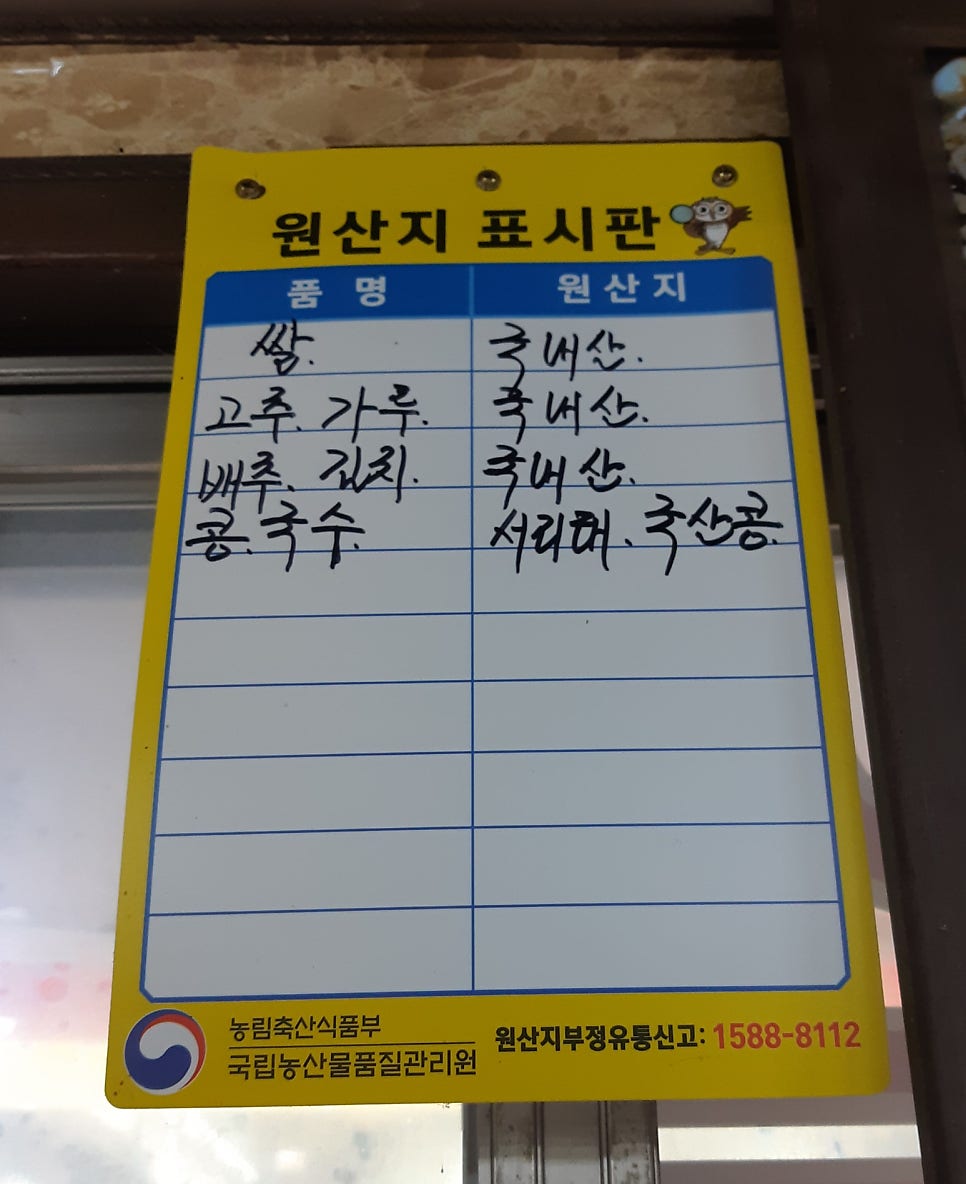 원산지 표시판
품 명 원산지
쌀. 국내산.
고추. 가루. 국내산.
배추. 김치. 국내산.
콩. 국수. 서리태. 국산콩.
농림축산식품부
국립농산물품질관리원
원산지부정유통신고: 1588-8112